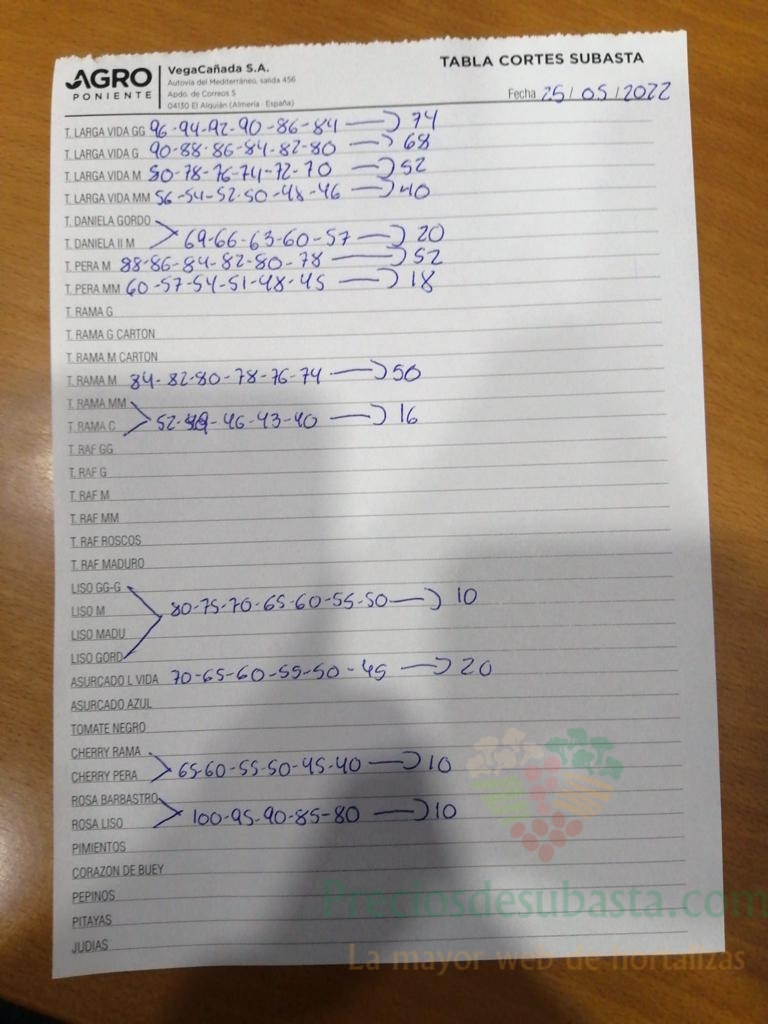 AGRO
PONIENTE
VegaCañada S.A.
Autovía del Mediterráneo, salida 456
Apdo. de Correos 5
04130 El Alquián (Almería · España)
TABLA CORTES SUBASTA
Fecha 25/05/2022
T. LARGA VIDA GG 96-94-92-90-86-84 → 74
T. LARGA VIDA G 90-88-86-84-82-80 → 68
T. LARGA VIDA M 80-78-76-74-72-70 → 52
T. LARGA VIDA MM 56-54-52-50-48-46 → 40
T. DANIELA GORDO
T. DANIELA II M 69-66-63-60-57 → 20
T. PERA M 88-86-84-82-80-78 → 52
T. PERA MM 60-57-54-51-48-45 → 18
T. RAMA G
T. RAMA G CARTON
T. RAMA M CARTON
T. RAMA M 84-82-80-78-76-74 → 50
T. RAMA MM
T. RAMA C 52-49-46-43-40 → 16
T. RAF GG
T. RAF G
T. RAF M
T. RAF MM
T. RAF ROSCOS
T. RAF MADURO
LISO GG-G
LISO M 80-75-70-65-60-55-50 → 10
LISO MADU
LISO GORD
ASURCADO L VIDA 70-65-60-55-50-45 → 20
ASURCADO AZUL
TOMATE NEGRO
CHERRY RAMA
CHERRY PERA 65-60-55-50-45-40 → 10
ROSA BARBASTRO
ROSA LISO 100-95-90-85-80 → 10
PIMIENTOS
CORAZON DE BUEY
PEPINOS
PITAYAS
JUDIAS
Preciosdesubasta.com
La mayor web de hortalizas